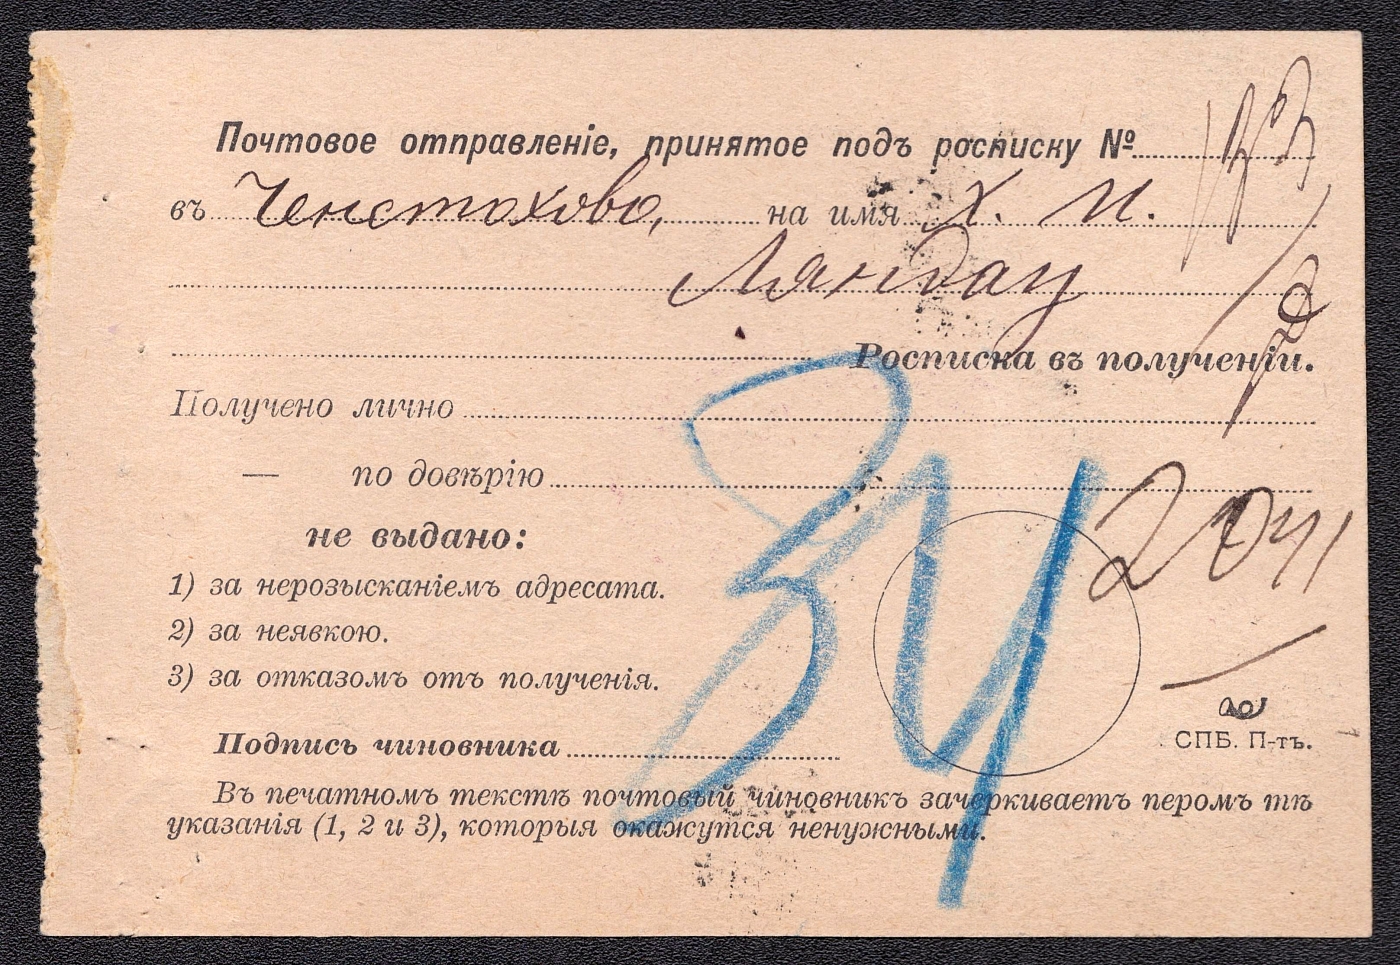 Почтовое отправленіе, принятое подъ росписку №
въ Ченстохово, на имя Х. И.
Ляндау
Росписка въ полученіи.
Получено лично
— по довѣрію
не выдано:
1) за нерозысканіемъ адресата.
2) за неявкою.
3) за отказомъ отъ полученія.
34
Подпись чиновника
СПБ. П-тъ.
Въ печатномъ текстѣ почтовый чиновникъ зачеркиваетъ перомъ тѣ
указанія (1, 2 и 3), которыя окажутся ненужными.